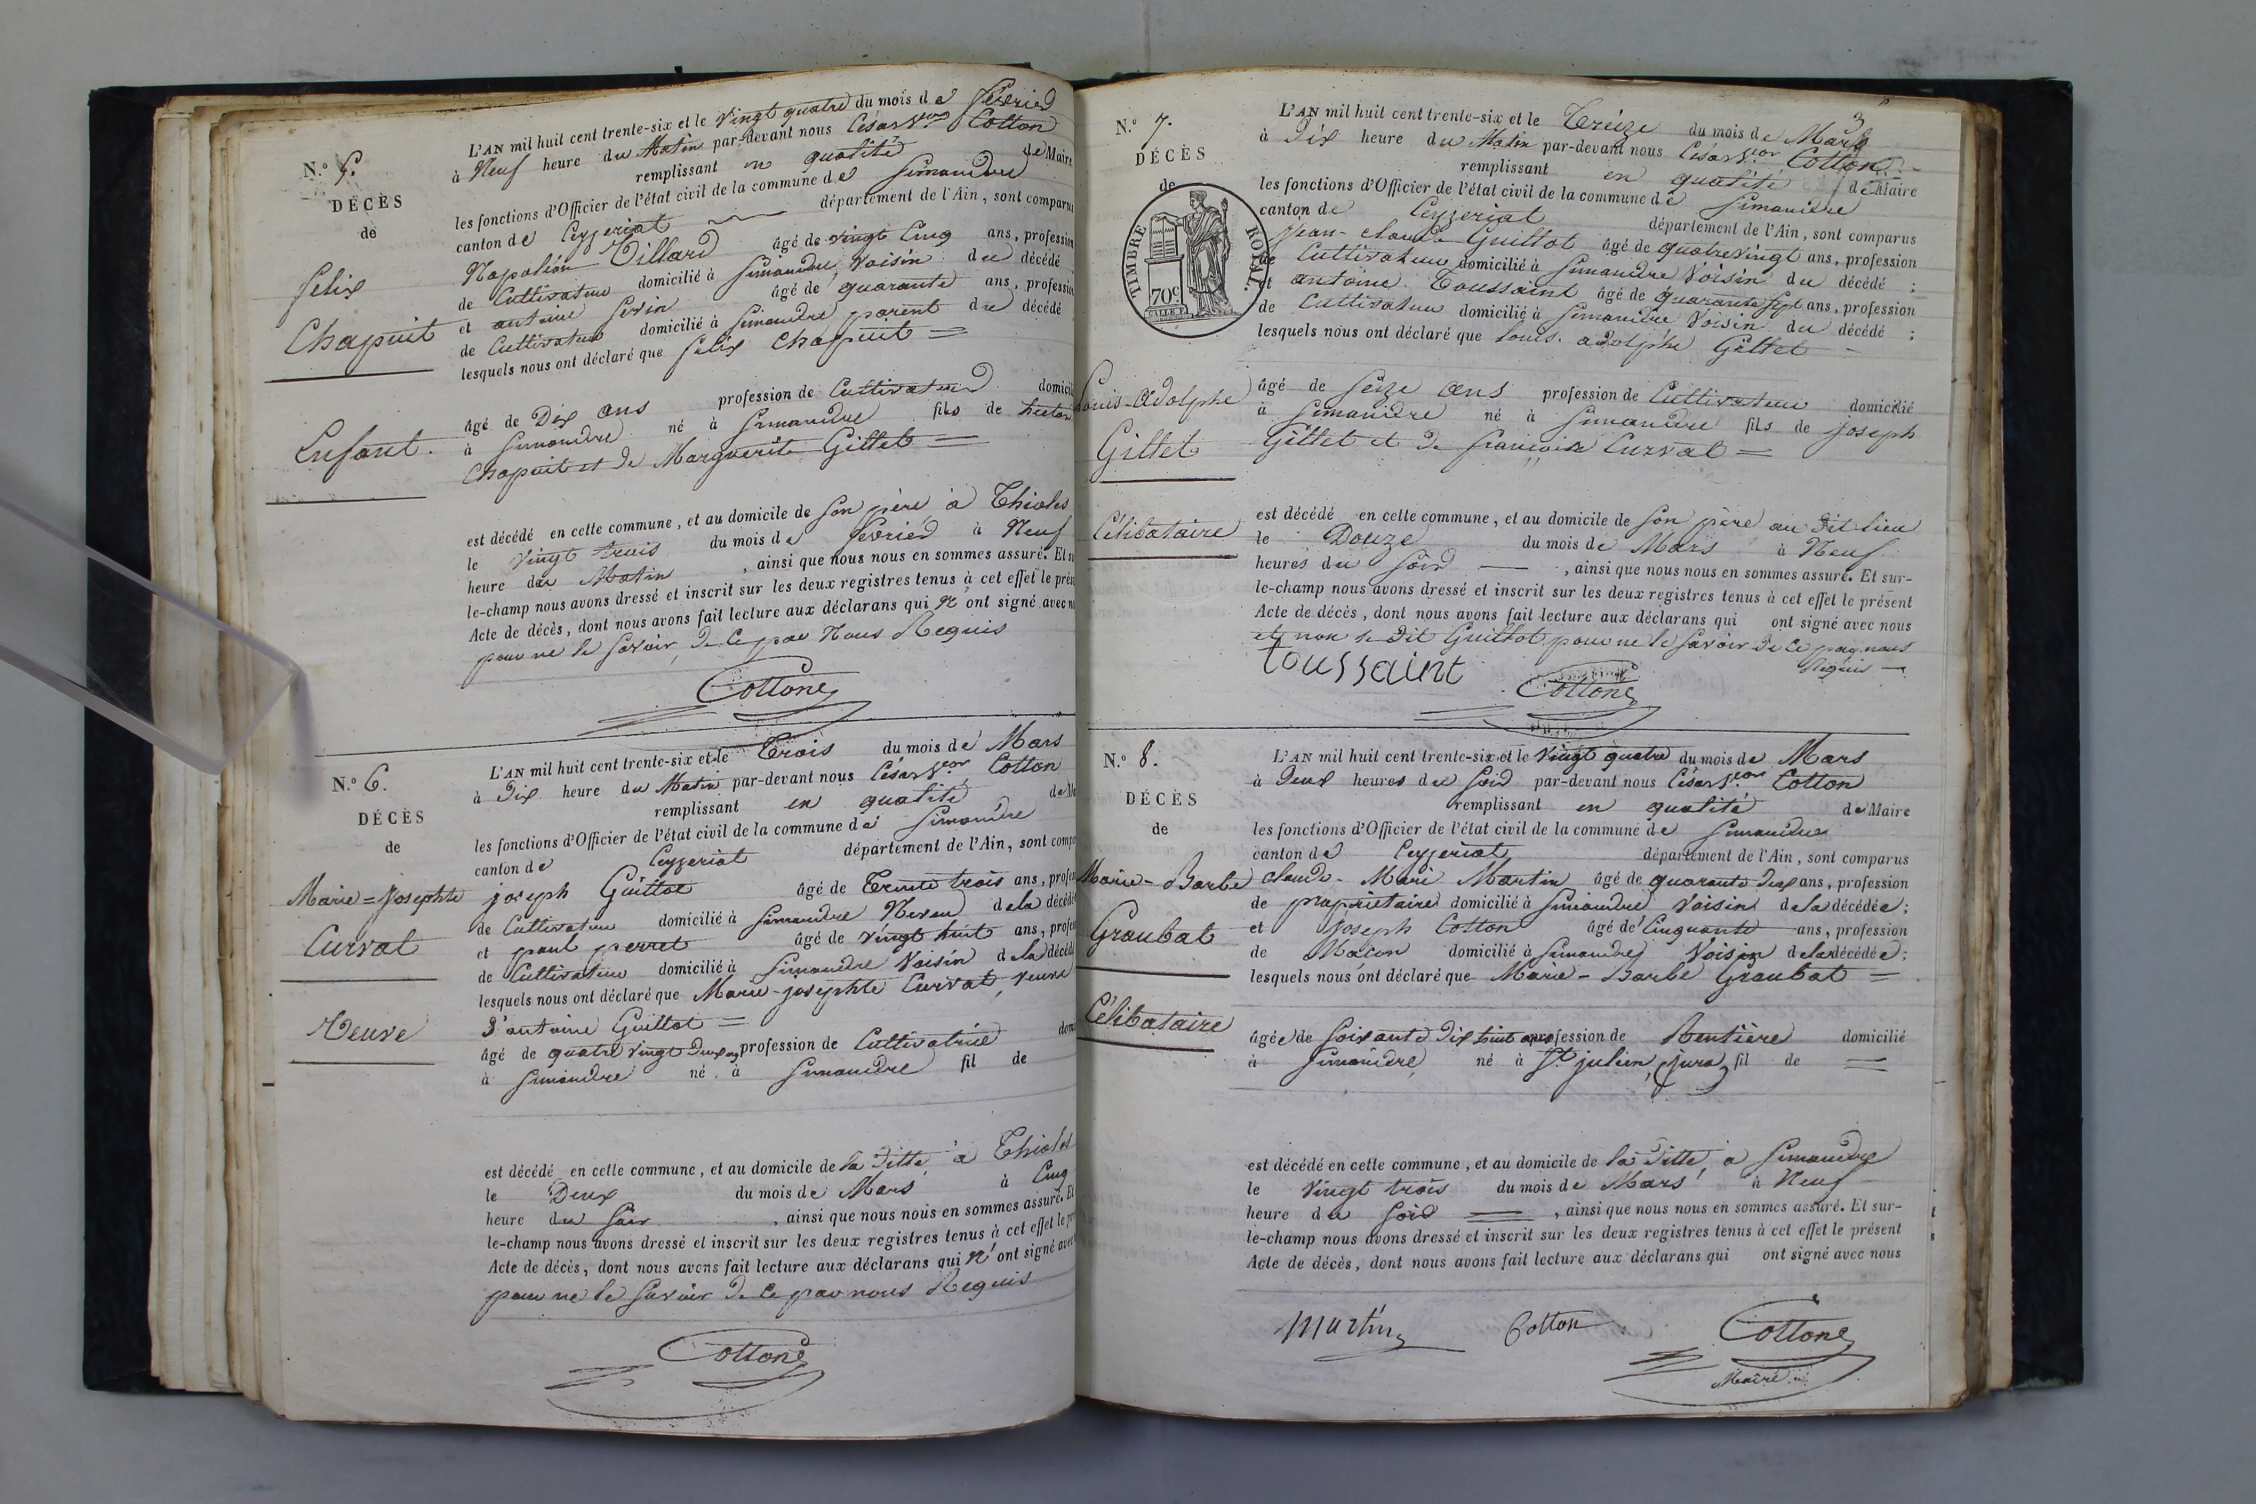 N.° 5.
DÉCÈS
de
felix
Chapuit
Enfant.
L'AN mil huit cent trente-six et le vingt quatre du mois de février
à Neuf heure du Matin par-devant nous César V.eor Cotton
remplissant en qualité de Maire
les fonctions d'Officier de l'état civil de la commune de Simandre
canton de Ceyzeriat département de l'Ain, sont comparus
Napoléon Villard âgé de vingt Cinq ans, profession
de Cultivateur domicilié à Simandre Voisin du décédé
et antoine âgé de quarante ans, profession
de Cultivateur domicilié à Simandre parent du décédé
lesquels nous ont déclaré que felix Chapuit =
âgé de Dix ans profession de Cultivateur domicil
à Simandre né à Simandre fils de
Chapuit et de Marguerite Gillet =
est décédé en cette commune, et au domicile de son père à Thioles
le vingt trois du mois de février à Neuf
heure du Matin , ainsi que nous nous en sommes assuré. Et su
le-champ nous avons dressé et inscrit sur les deux registres tenus à cet effet le prés
Acte de décès, dont nous avons fait lecture aux déclarans qui n'ont signé avec no
pour ne le savoir, de Ce par Nous Requis
Cotton
N.° 6.
DÉCÈS
de
Marie=Josephte
Curvat
Veuve
L'AN mil huit cent trente-six et le Trois du mois de Mars
à Dix heure du Matin par-devant nous César V.eor Cotton
remplissant en qualité de Ma
les fonctions d'Officier de l'état civil de la commune de Simandre
canton de Ceyzeriat département de l'Ain, sont compa
joseph Guillot âgé de Trente trois ans, profes
de Cultivateur domicilié à Simandre Neveu de la décédé
et paul perret âgé de vingt huit ans, profes
de Cultivateur domicilié à Simandre Voisin de la décédé
lesquels nous ont déclaré que Marie-josephte Curvat, veuve
d'antoine Guillot =
âgé de quatre vingt Deux ans profession de Cultivatrice dom
à Simandre né à Simandre fil de
est décédé en cette commune, et au domicile de la ditte, à Thioles
le Deux du mois de Mars à Cinq
heure du Soir , ainsi que nous nous en sommes assuré. Et
le-champ nous avons dressé et inscrit sur les deux registres tenus à cet effet le pr
Acte de décès, dont nous avons fait lecture aux déclarans qui n'ont signé avec
pour ne le savoir de Ce par nous Requis
Cotton
3
N.° 7.
DÉCÈS
de
TIMBRE ROYAL.
70c
Louis-adolphe
Gillet
Célibataire
L'AN mil huit cent trente-six et le Treize du mois de Mars
à Dix heure du Matin par-devant nous César V.eor Cotton
remplissant en qualité de Maire
les fonctions d'Officier de l'état civil de la commune de Simandre
canton de Ceyzeriat département de l'Ain, sont comparus
jean-claude Guillot âgé de quatre vingt ans, profession
de Cultivateur domicilié à Simandre Voisin du décédé ;
et antoine Toussaint âgé de quarante sept ans, profession
de Cultivateur domicilié à Simandre Voisin du décédé ;
lesquels nous ont déclaré que louis. adolphe Gillet
âgé de Seize ans profession de Cultivateur domicilié
à Simandre né à Simandre fils de joseph
Gillet et de françoise Curvat =
est décédé en cette commune, et au domicile de son père au dit lieu
le Douze du mois de Mars à Neuf
heures du Soir , ainsi que nous nous en sommes assuré. Et sur-
le-champ nous avons dressé et inscrit sur les deux registres tenus à cet effet le présent
Acte de décès, dont nous avons fait lecture aux déclarans qui ont signé avec nous
et non le dit Guillot pour ne le savoir de Ce par nous
Requis
toussaint Cotton
N.° 8.
DÉCÈS
de
Marie-Barbe
Graubat
Célibataire
L'AN mil huit cent trente-six et le vingt quatre du mois de Mars
à Deux heures du Soir par-devant nous César V.eor Cotton
remplissant en qualité de Maire
les fonctions d'Officier de l'état civil de la commune de Simandre
canton de Ceyzeriat département de l'Ain, sont comparus
claude-Marie Martin âgé de quarante Deux ans, profession
de propriétaire domicilié à Simandre Voisin de la décédée ;
et Joseph Cotton âgé de Cinquante ans, profession
de Macon domicilié à Simandre Voisin de la décédée ;
lesquels nous ont déclaré que Marie-Barbe Graubat =
âgée de Soixante Dix huit ans profession de Rentière domicilié
à Simandre né à St julien, (jura) fil de =
est décédé en cette commune, et au domicile de la ditte, à Simandre
le vingt trois du mois de Mars à Neuf
heure du Soir , ainsi que nous nous en sommes assuré. Et sur-
le-champ nous avons dressé et inscrit sur les deux registres tenus à cet effet le présent
Acte de décès, dont nous avons fait lecture aux déclarans qui ont signé avec nous
Martin Cotton Cotton
Maire